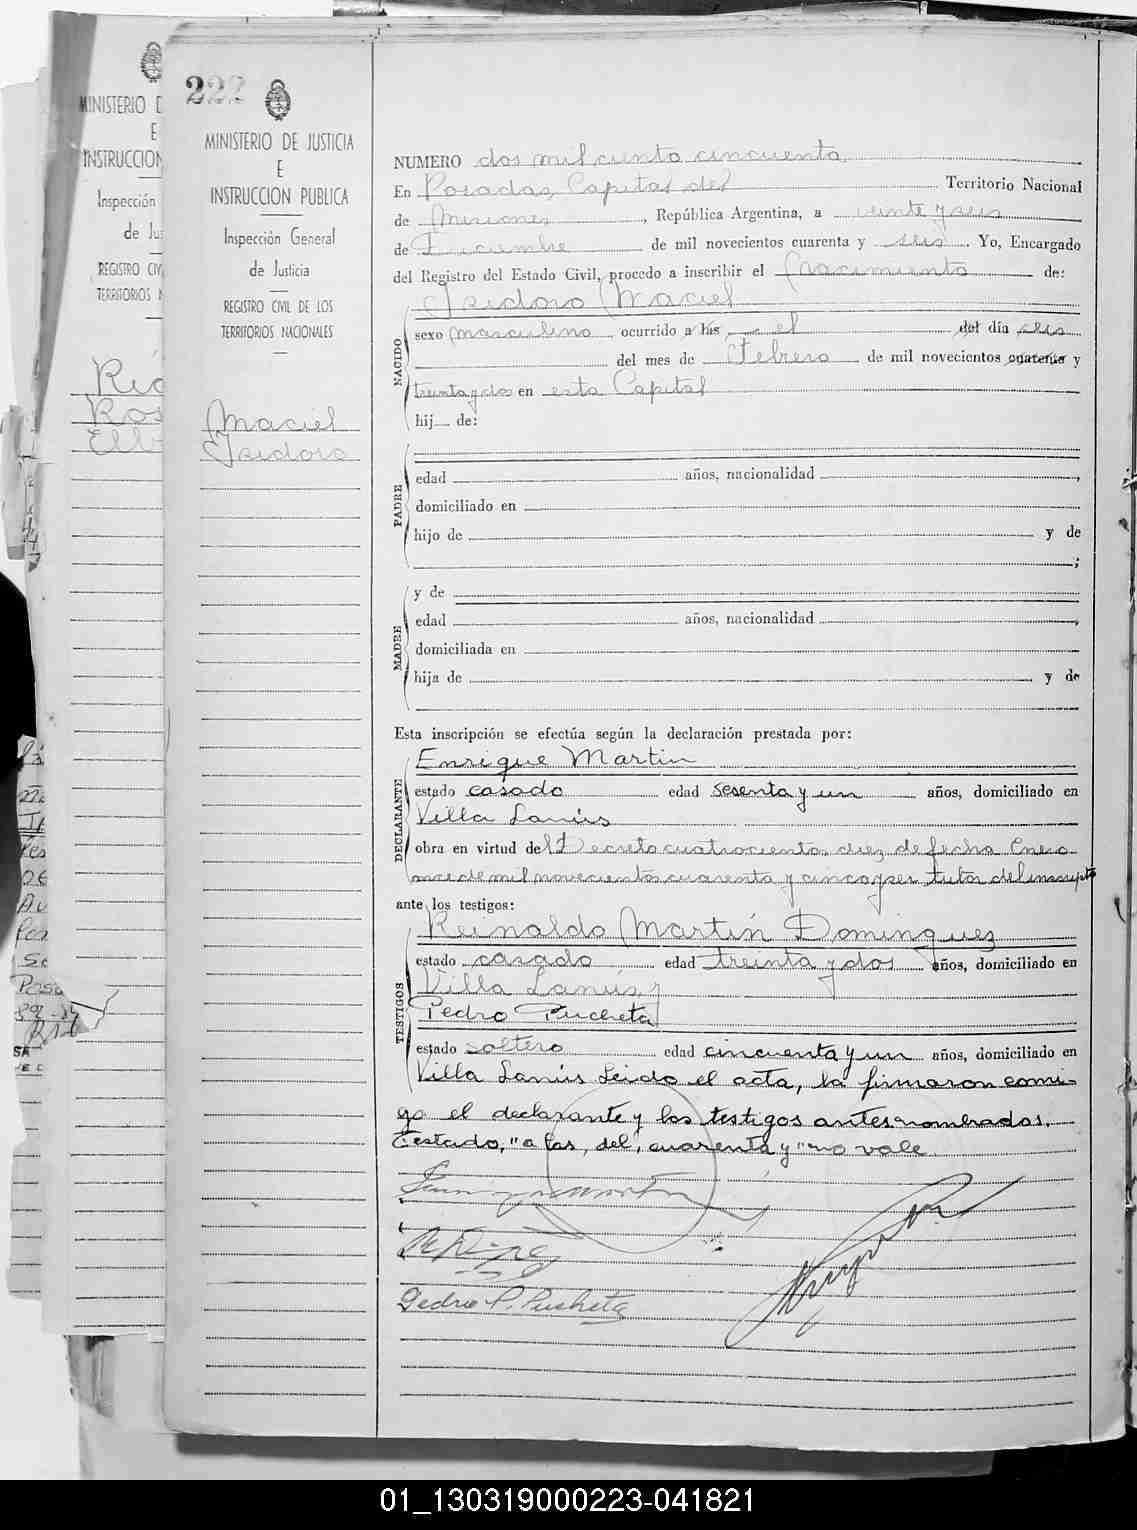 222
MINISTERIO DE JUSTICIA
E
INSTRUCCION PUBLICA
Inspección General
de Justicia
REGISTRO CIVIL DE LOS
TERRITORIOS NACIONALES
Maciel
Isidoro
NUMERO dos mil ciento cincuenta
En Posadas, Capital del Territorio Nacional
de Misiones, República Argentina, a veinte y seis
de Diciembre de mil novecientos cuarenta y seis. Yo, Encargado
del Registro del Estado Civil, procedo a inscribir el Nacimiento de:
Isidoro Maciel
NACIDO
sexo masculino ocurrido a las el del día seis
del mes de Febrero de mil novecientos cuarenta y
treinta y dos en esta Capital
hij de:
PADRE
edad años, nacionalidad ,
domiciliado en
hijo de y de
;
MADRE
y de
edad años, nacionalidad ,
domiciliada en
hija de y de
Esta inscripción se efectúa según la declaración prestada por:
DECLARANTE
Enrique Martin
estado casado edad sesenta y un años, domiciliado en
Villa Lanús
obra en virtud del Decreto cuatrocientos diez de fecha Enero
once de mil novecientos cuarenta y cinco y ser tutor del inscripto
ante los testigos:
TESTIGOS
Reinaldo Martín Dominguez
estado casado edad treinta y dos años, domiciliado en
Villa Lanús y
Pedro Pucheta
estado soltero edad cincuenta y un años, domiciliado en
Villa Lanús Leida el acta, la firmaron conmi-
go el declarante y los testigos antes nombrados.
Testado, "a las, del, cuarenta y" no vale
Pedro P. Pucheta
MINISTERIO D
E
INSTRUCCION
Inspección
de Jus
REGISTRO CIV
TERRITORIOS N
01_130319000223-041821